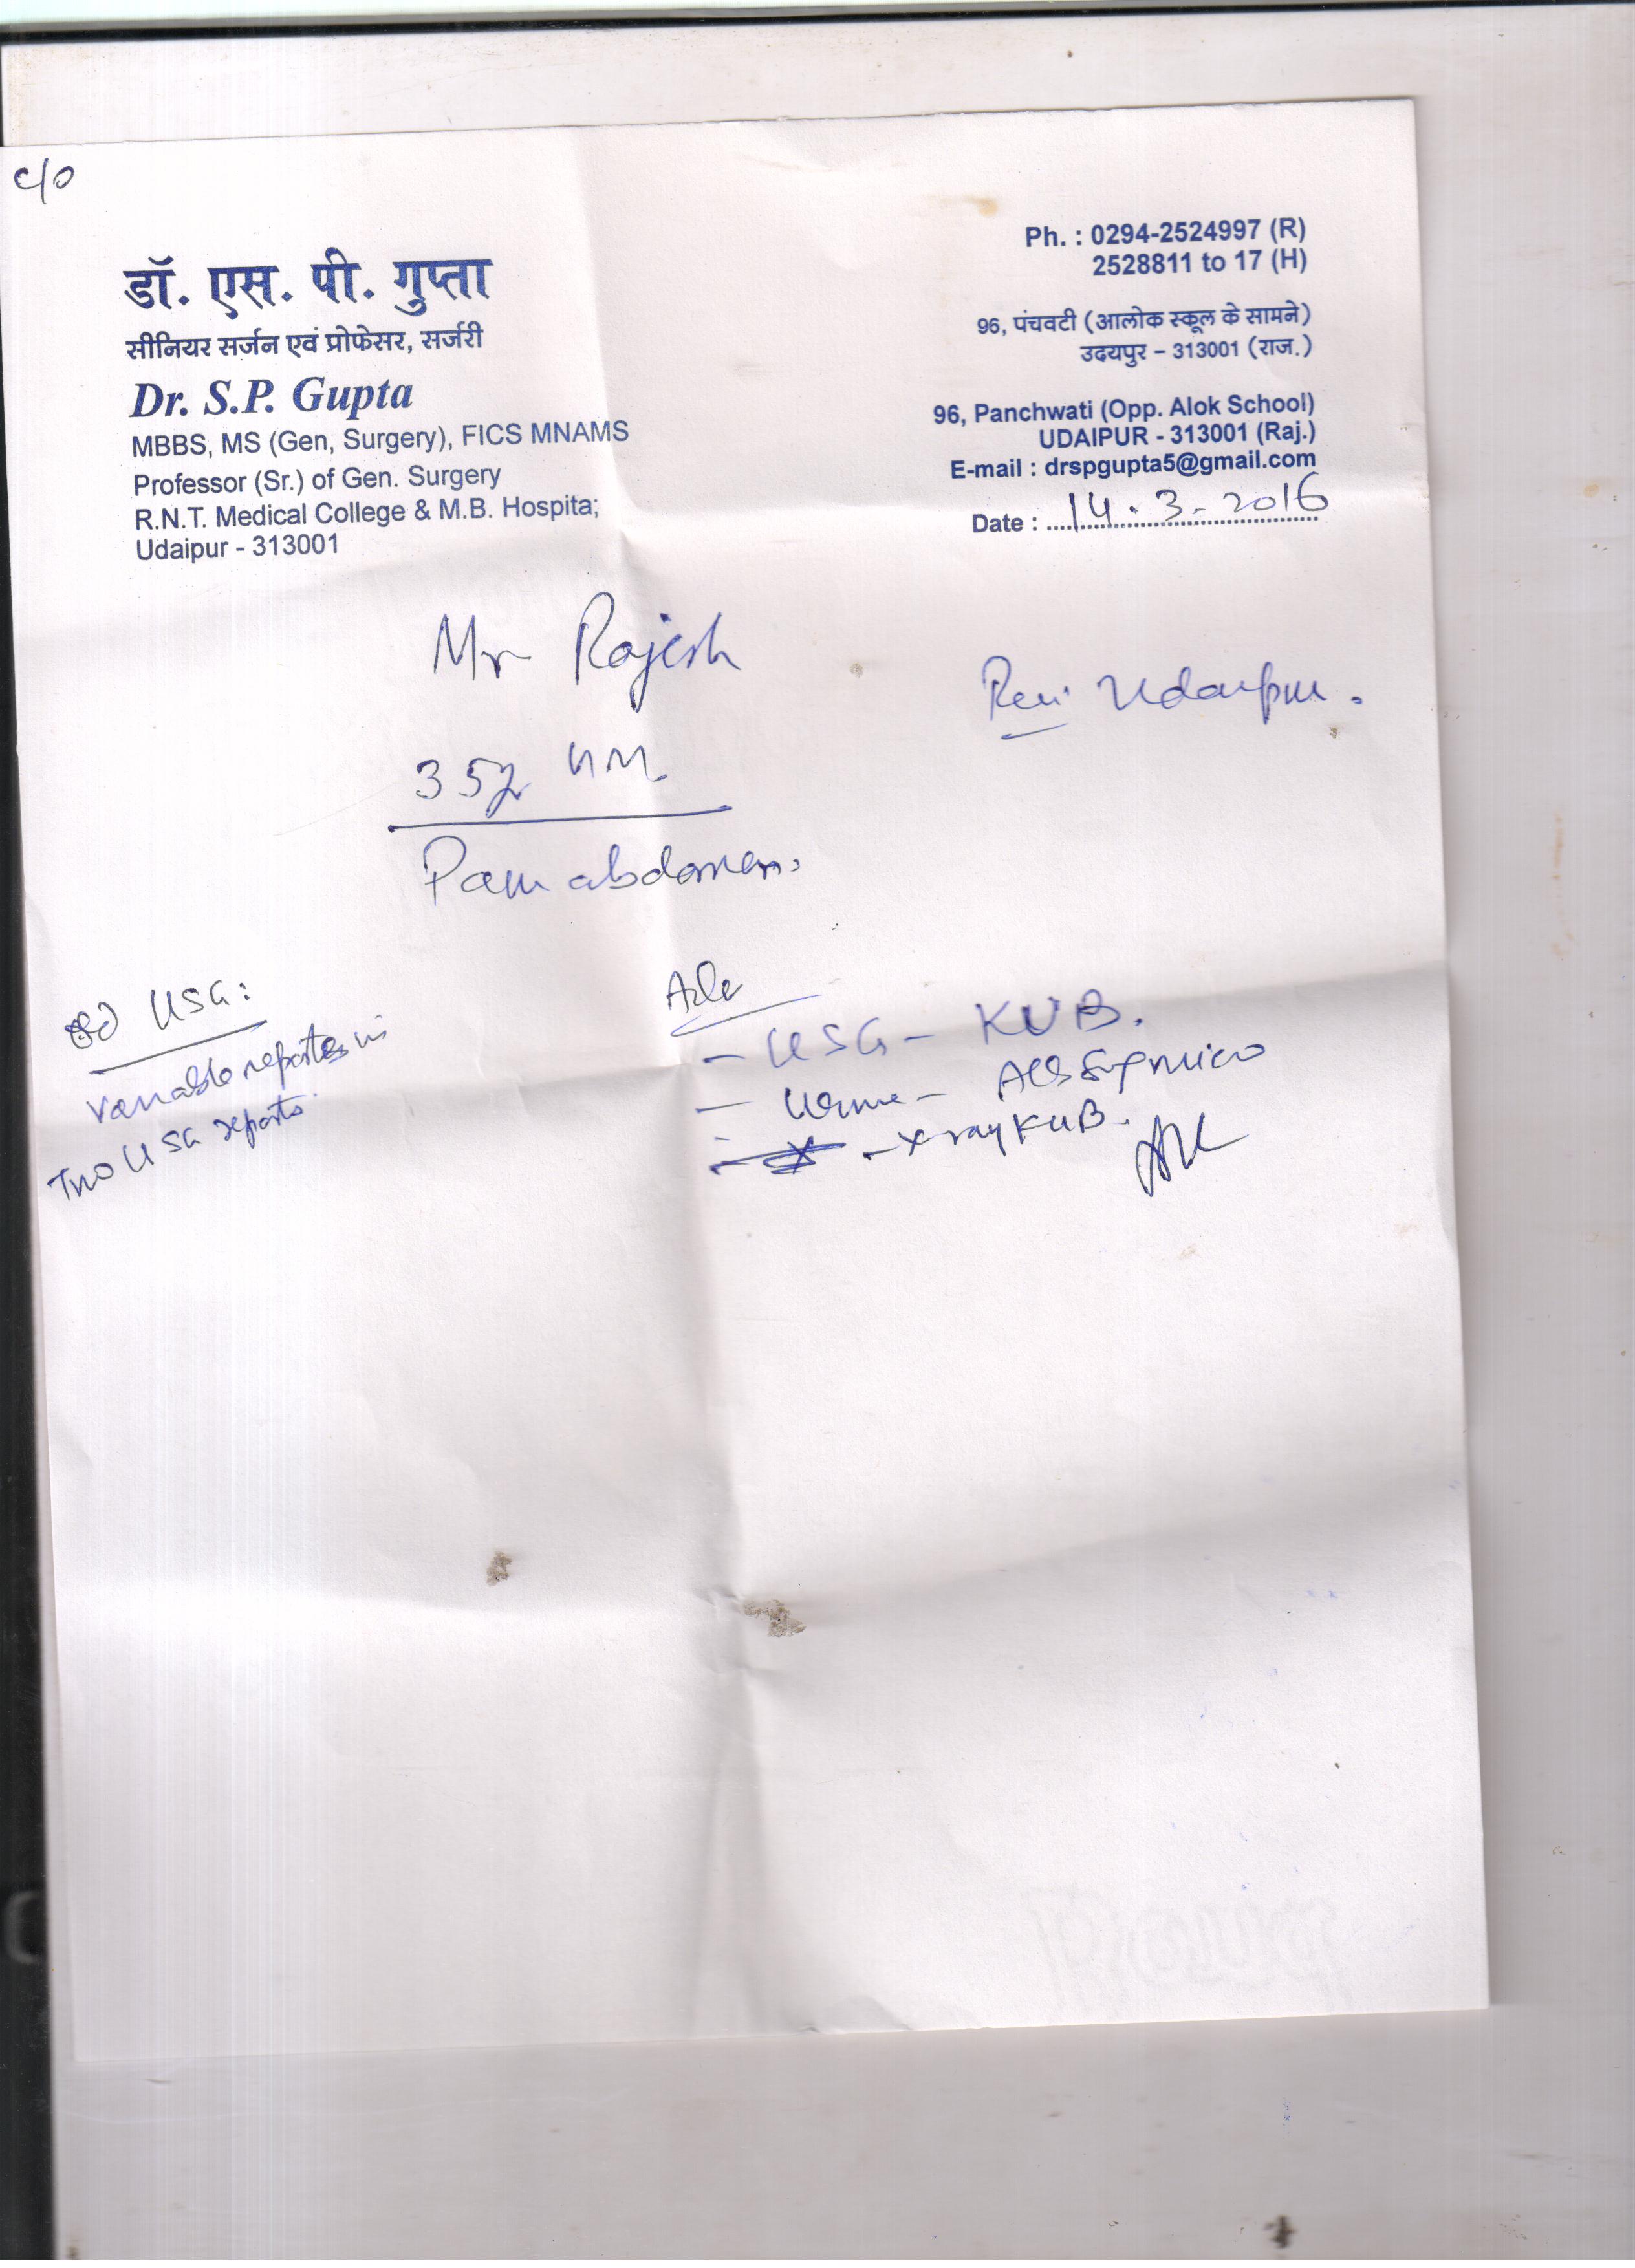 c/o
डॉ. एस. पी. गुप्ता
सीनियर सर्जन एवं प्रोफेसर, सर्जरी
Dr. S.P. Gupta
MBBS, MS (Gen, Surgery), FICS MNAMS
Professor (Sr.) of Gen. Surgery
R.N.T. Medical College & M.B. Hospita;
Udaipur - 313001
Ph. : 0294-2524997 (R)
2528811 to 17 (H)
96, पंचवटी (आलोक स्कूल के सामने)
उदयपुर – 313001 (राज.)
96, Panchwati (Opp. Alok School)
UDAIPUR - 313001 (Raj.)
E-mail : drspgupta5@gmail.com
Date : 14.3.2016
Mr Rajesh
Udaipur.
35y
Pain abdomen.
USG:
Variable reports in
Two USG reports
Adv
- USG - KUB.
- Urine -
- X-ray KUB.